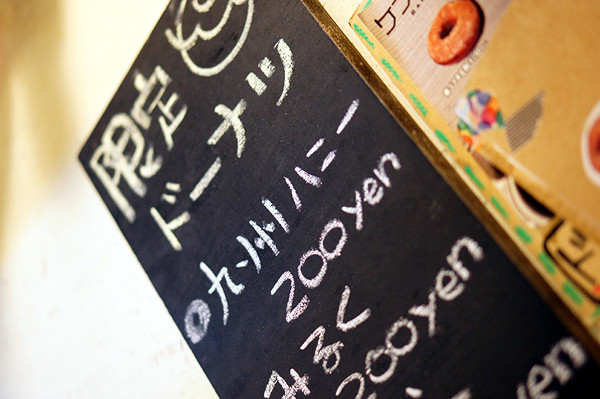 限定
ドーナツ
◎九州ハニー
200yen
みるく
200yen
yen